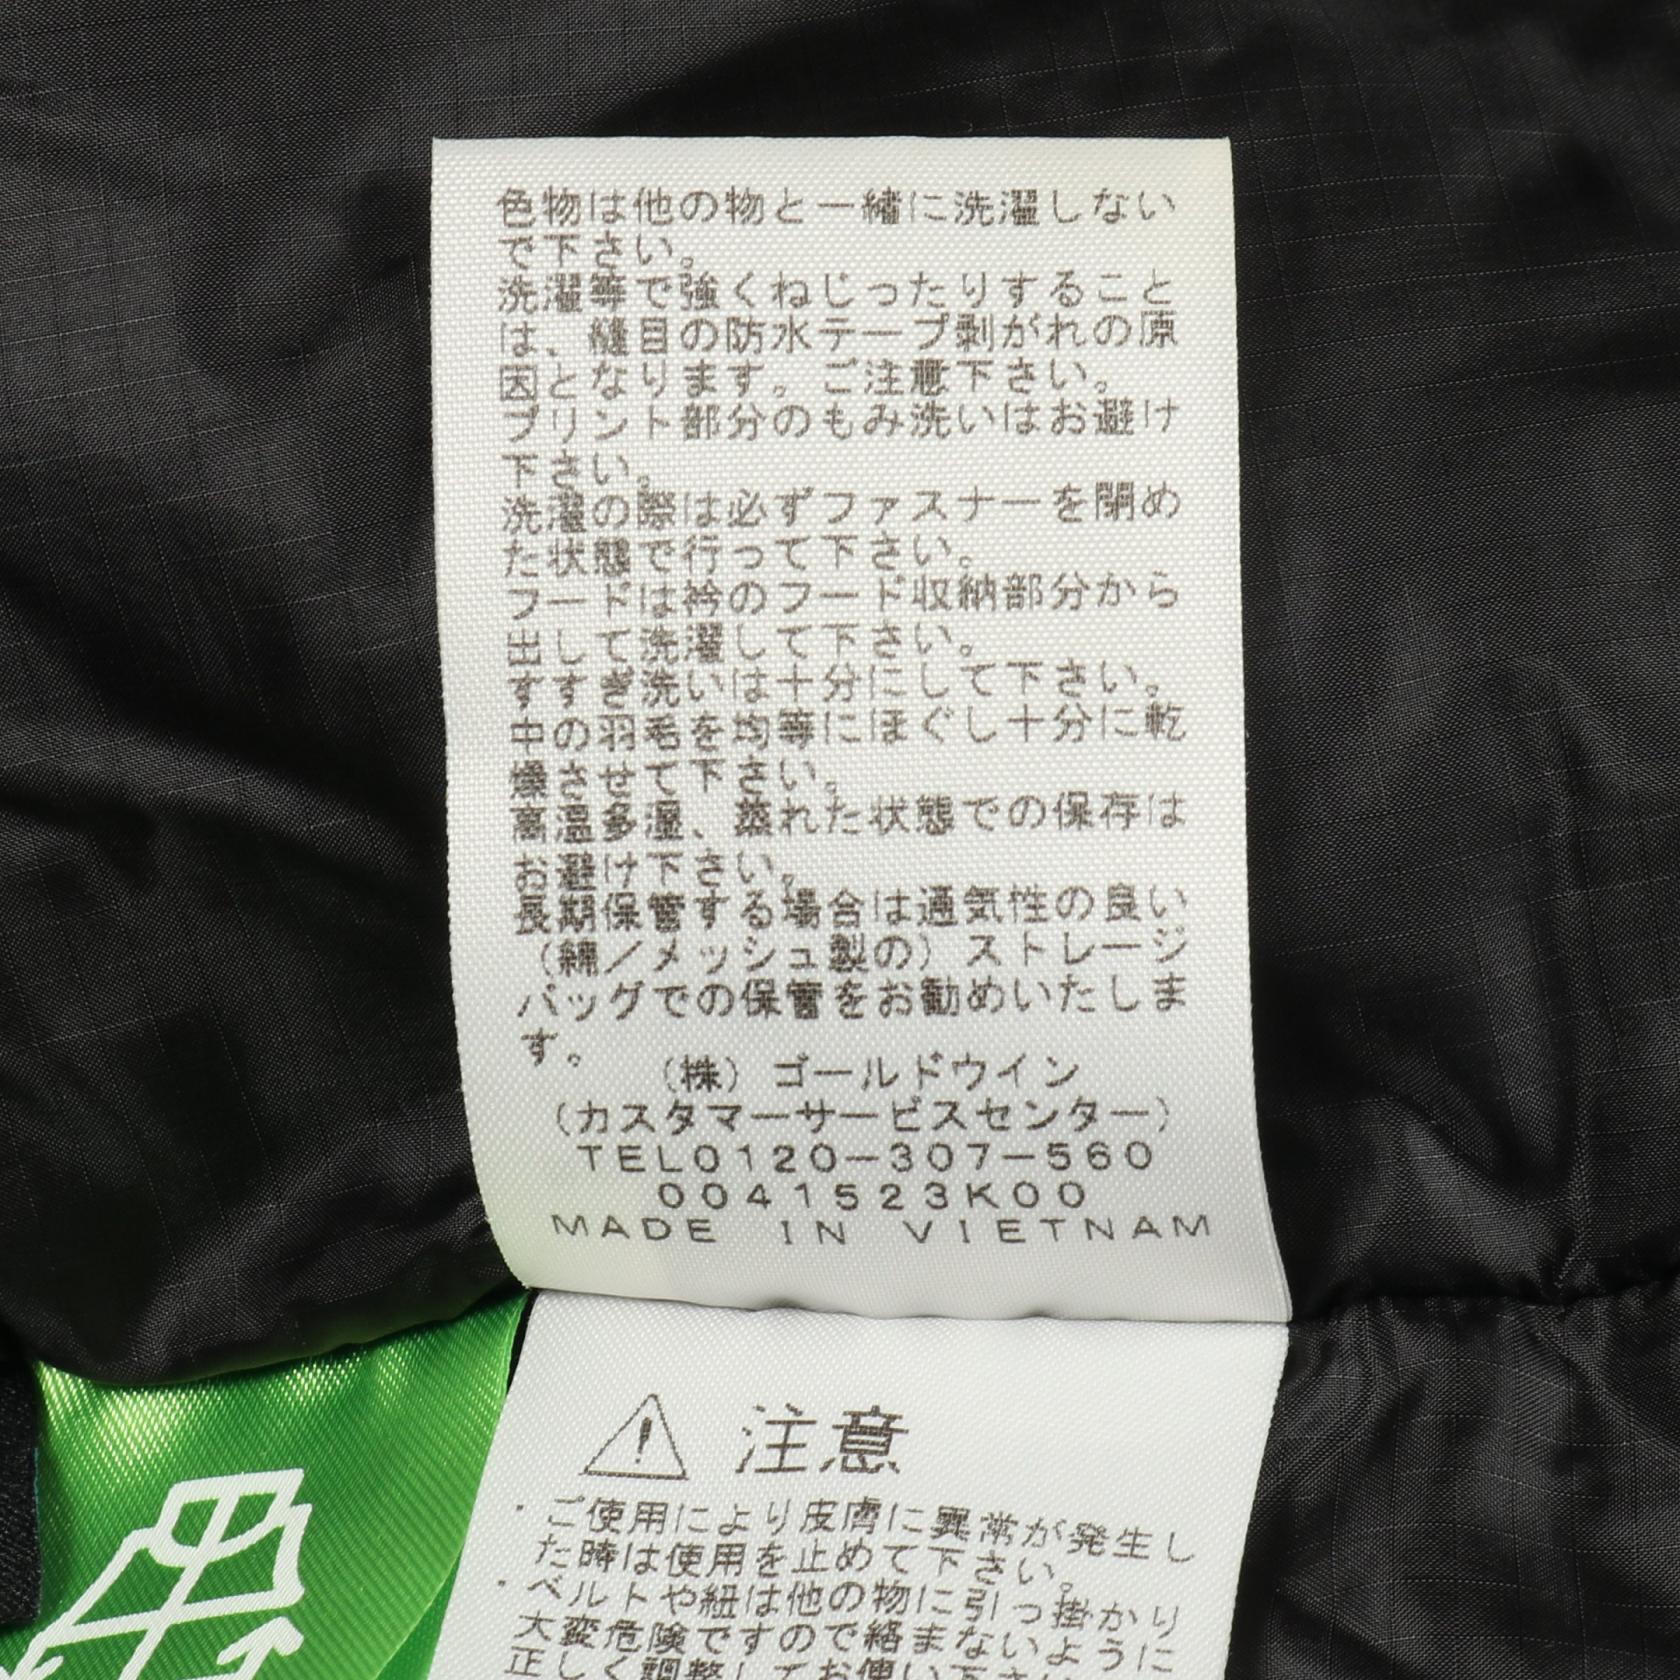 色物は他の物と一緒に洗濯しない
で下さい。
洗濯等で強くねじったりすること
は、縫目の防水テープ剥がれの原
因となります。ご注意下さい。
プリント部分のもみ洗いはお避け
下さい。
洗濯の際は必ずファスナーを閉め
た状態で行って下さい。
フードは衿のフード収納部分から
出して洗濯して下さい。
すすぎ洗いは十分にして下さい。
中の羽毛を均等にほぐし十分に乾
燥させて下さい。
高温多湿、蒸れた状態での保存は
お避け下さい。
長期保管する場合は通気性の良い
（綿／メッシュ製の）ストレージ
バッグでの保管をお勧めいたしま
す。
（株）ゴールドウイン
（カスタマーサービスセンター）
TEL0120-307-560
0041523K00
MADE IN VIETNAM
注意
・ご使用により皮膚に異常が発生し
た時は使用を止めて下さい。
・ベルトや紐は他の物に引っ掛かり
大変危険ですので絡まないように
正しく調整してお使い下さい